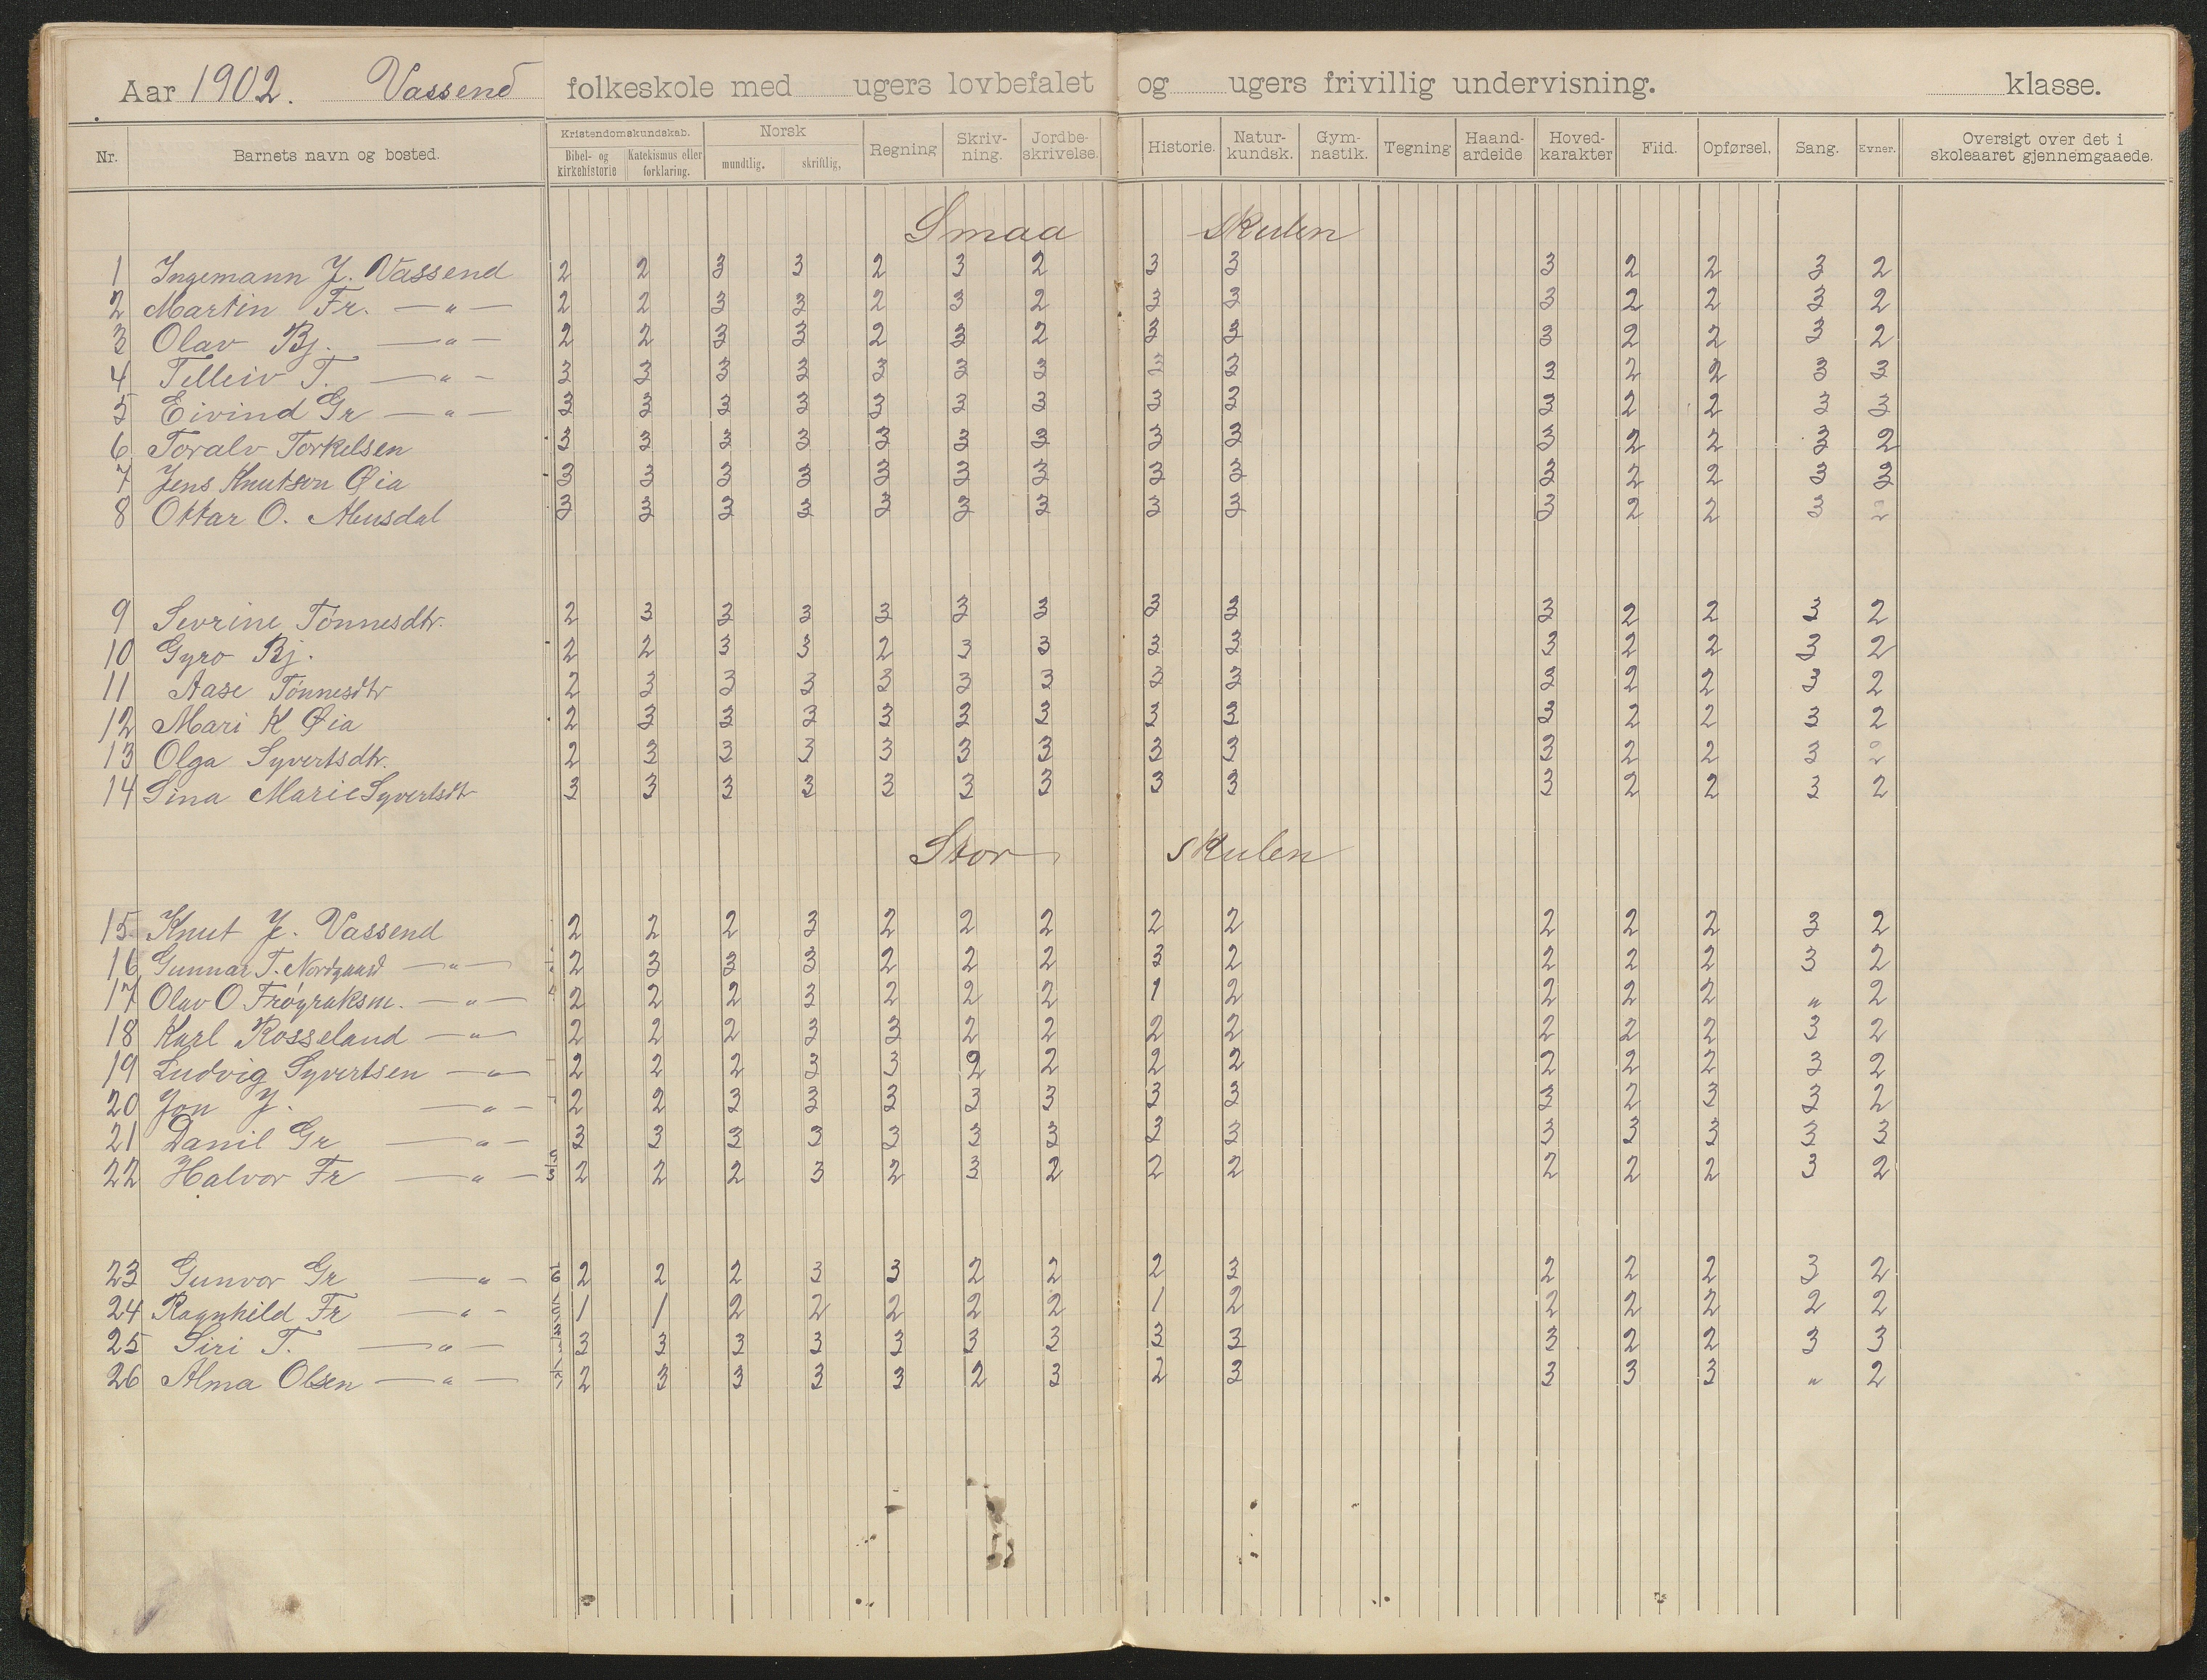 Aar 1902. Vassend folkeskole med ugers lovbefalet og ugers frivillig undervisning. klasse.
Nr. Barnets navn og bosted. Kristendomskundskab. Bibel- og kirkehistorie Katekismus eller forklaring. Norsk mundtlig, skriftlig, Regning Skriv-ning. Jordbe-skrivelse. Historie. Natur-kundsk. Gym-nastik. Tegning Haand-ardeide Hoved-karakter Flid. Opførsel, Sang. Evner. Oversigt over det i skoleaaret gjennemgaaede.
Smaa skulen
1 Ingemann J. Vassend 2 2 3 3 2 3 2 3 3 3 2 2 3 2
2 Martin Fr. — " — 2 2 3 3 2 3 2 3 3 3 2 2 3 2
3 Olav Bj. — " — 2 2 3 3 2 3 2 3 3 3 2 2 3 2
4 Telleiv T. — " — 3 3 3 3 3 3 3 3 3 3 2 2 3 3
5 Eivind Gr — " — 3 3 3 3 3 3 3 3 3 3 2 2 3 3
6 Toralv Torkelsen 3 3 3 3 3 3 3 3 3 3 2 2 3 2
7 Jens Knutson Øia 3 3 3 3 3 3 3 3 3 3 2 2 3 3
8 Ottar O. Abusdal 3 3 3 3 3 3 3 3 3 3 2 2 3 2
9 Sevrine Tönnesdtr. 2 3 3 3 3 3 3 3 3 3 2 2 3 2
10 Gyro Bj. 2 2 3 3 2 3 3 3 3 3 2 2 3 2
11 Aase Tönnesdtr 2 3 3 3 3 3 3 3 3 3 2 2 3 2
12 Mari K Øia 2 3 3 3 3 3 3 3 3 3 2 2 3 2
13 Olga Syvertsdtr. 2 3 3 3 3 3 3 3 3 3 2 2 3 2
14 Sina Marie Syvertsdtr 3 3 3 3 3 3 3 3 3 3 2 2 3 2
Stor skulen
15 Knut J. Vassend 2 2 2 3 2 2 2 2 2 2 2 2 3 2
16 Gunnar T. Nordgaard — " — 2 3 3 3 2 2 2 3 2 2 2 2 3 2
17 Olav O. Fröyraksm. — " — 2 2 2 3 2 2 2 1 2 2 2 2 " 2
18 Karl Rosseland — " — 2 2 2 3 3 2 2 2 2 2 2 2 3 2
19 Ludvig Syvertsen — " — 2 2 2 3 3 2 2 2 2 2 2 2 3 2
20 Jon J. — " — 2 2 3 3 3 3 3 3 3 3 2 3 3 2
21 Danil Gr — " — 3 3 3 3 3 3 3 3 3 3 3 3 3 3
22 Halvor Fr — " — 2 2 2 3 2 3 2 2 2 2 2 2 3 2
23 Gunvor Gr — " — 2 2 2 3 3 2 2 2 3 2 2 2 3 2
24 Ragnhild Fr — " — 1 1 2 2 2 2 2 1 2 2 2 2 2 2
25 Siri T. — " — 3 3 3 3 3 3 3 3 3 3 2 2 3 3
26 Alma Olsen — " — 2 3 3 3 3 2 3 2 3 3 3 3 " 2